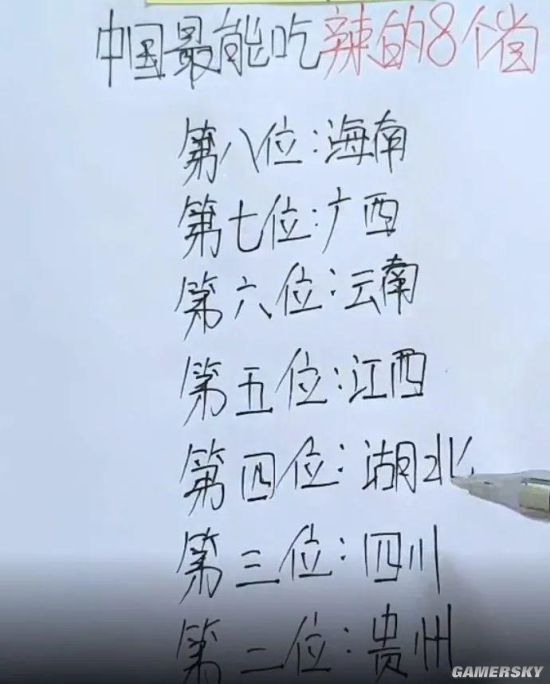 中国最能吃辣的8个省
第八位:海南
第七位:广西
第六位:云南
第五位:江西
第四位:湖北
第三位:四川
第二位:贵州
GAMERSKY